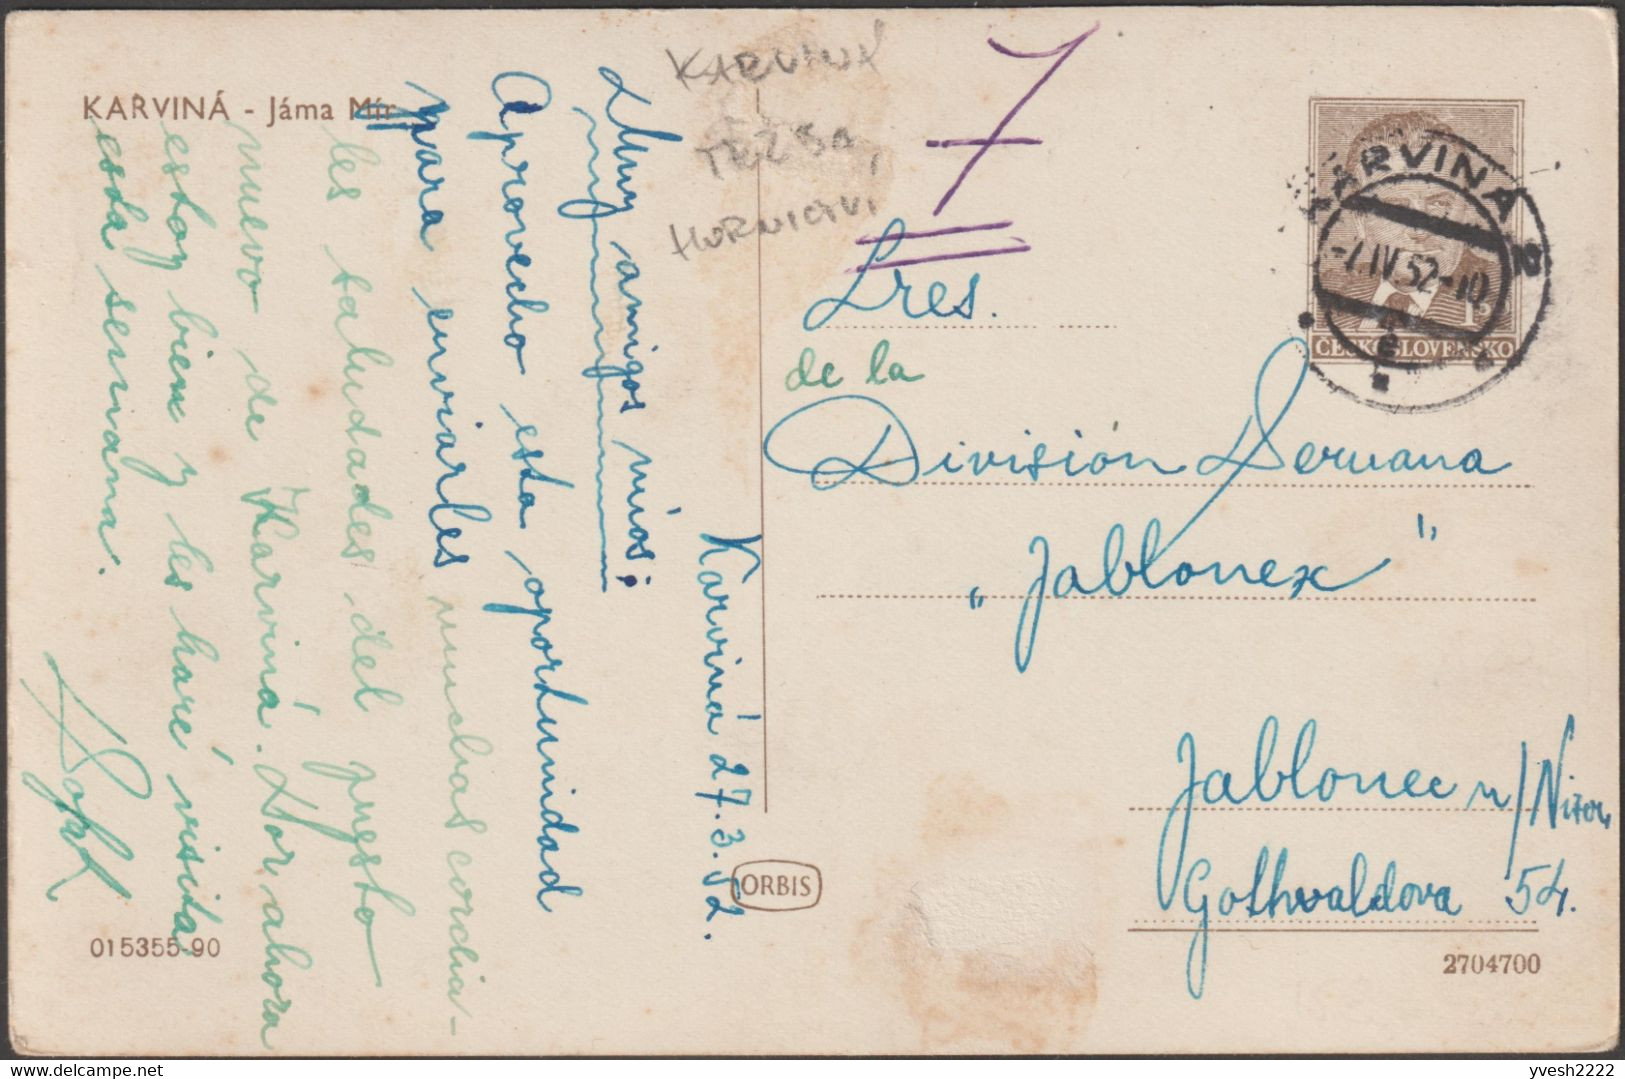 KARVINÁ - Jáma Mír
KARVINÁ
TĚŽBA,
HORNICTVÍ
7
Karviná 27.3.52.
Muy amigos míos:
Aprovecho esta oportunidad
para enviarles muchas cordia-
les saludades del puesto
nuevo de Karviná. Por ahora
estoy bien y les haré visita
esda semana.
Sres.
de la
División Peruana
„Jablonex"
Jablonec n/Nisou
Gothwaldova 54.
KARVINÁ 2
-7.IV.52-10
ČESKOSLOVENSKO
ORBIS
015355-90
2704700
yvesh2222